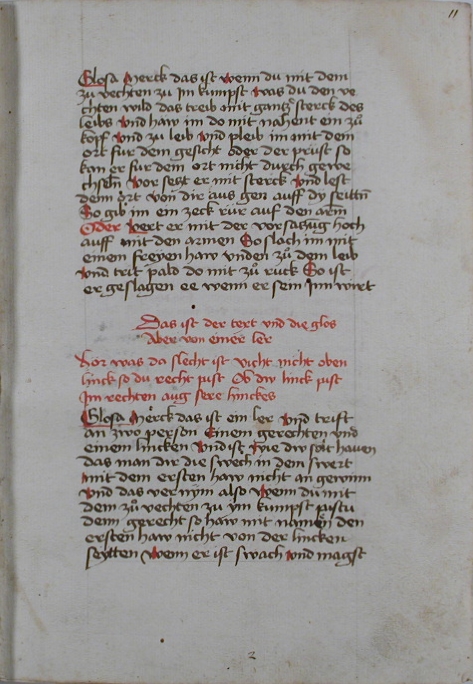 11
Glosa Merck das ist wenn du mit dem
zu vechten zu Im kumpst was du den ve
chten wild das treib mit gantzer sterck des
leibs Vnd haw im do mit nahent ein zů
kopf Vnd zu leib Vnd pleib im mit dem
ort fur dem gesicht oder der prust so
kan er fur dem ort nicht durch gewe
chseln Vor setzt er mit sterck Vnd lest
dem ort von dir aus gen auff dy seittñ
So gib im ein zeck rür auf den arm
Oder Vert er mit der vorsatzug hoch
auff mit den armen So slach im mit
einem freyen haw vnden zů dem leib
Vnd trit pald do mit zů ruck So ist
er geslagen ee wenn er sein Inn wirt
Das ist der text vnd die glos
Aber von einer ler
Hor was da slecht ist vicht nicht oben
linck so du recht pist Ob dw linck pist
Im rechten aug sere hinckes
Glosa Merck das ist ein ler Vnd trift
an zwo person Einem gerechten vnd
einem lincken Vnd ist Wie dw solt hawen
das man dir die swech in dem swert
mit dem ersten haw nicht an gewinn
Vnd das vernym also Wenn du mit
dem zů vechten zu ym kumpst pistu
dem gerecht so haw mit namen den
ersten haw nicht von der lincken
seytten Wenn er ist swach Vnd magst
2